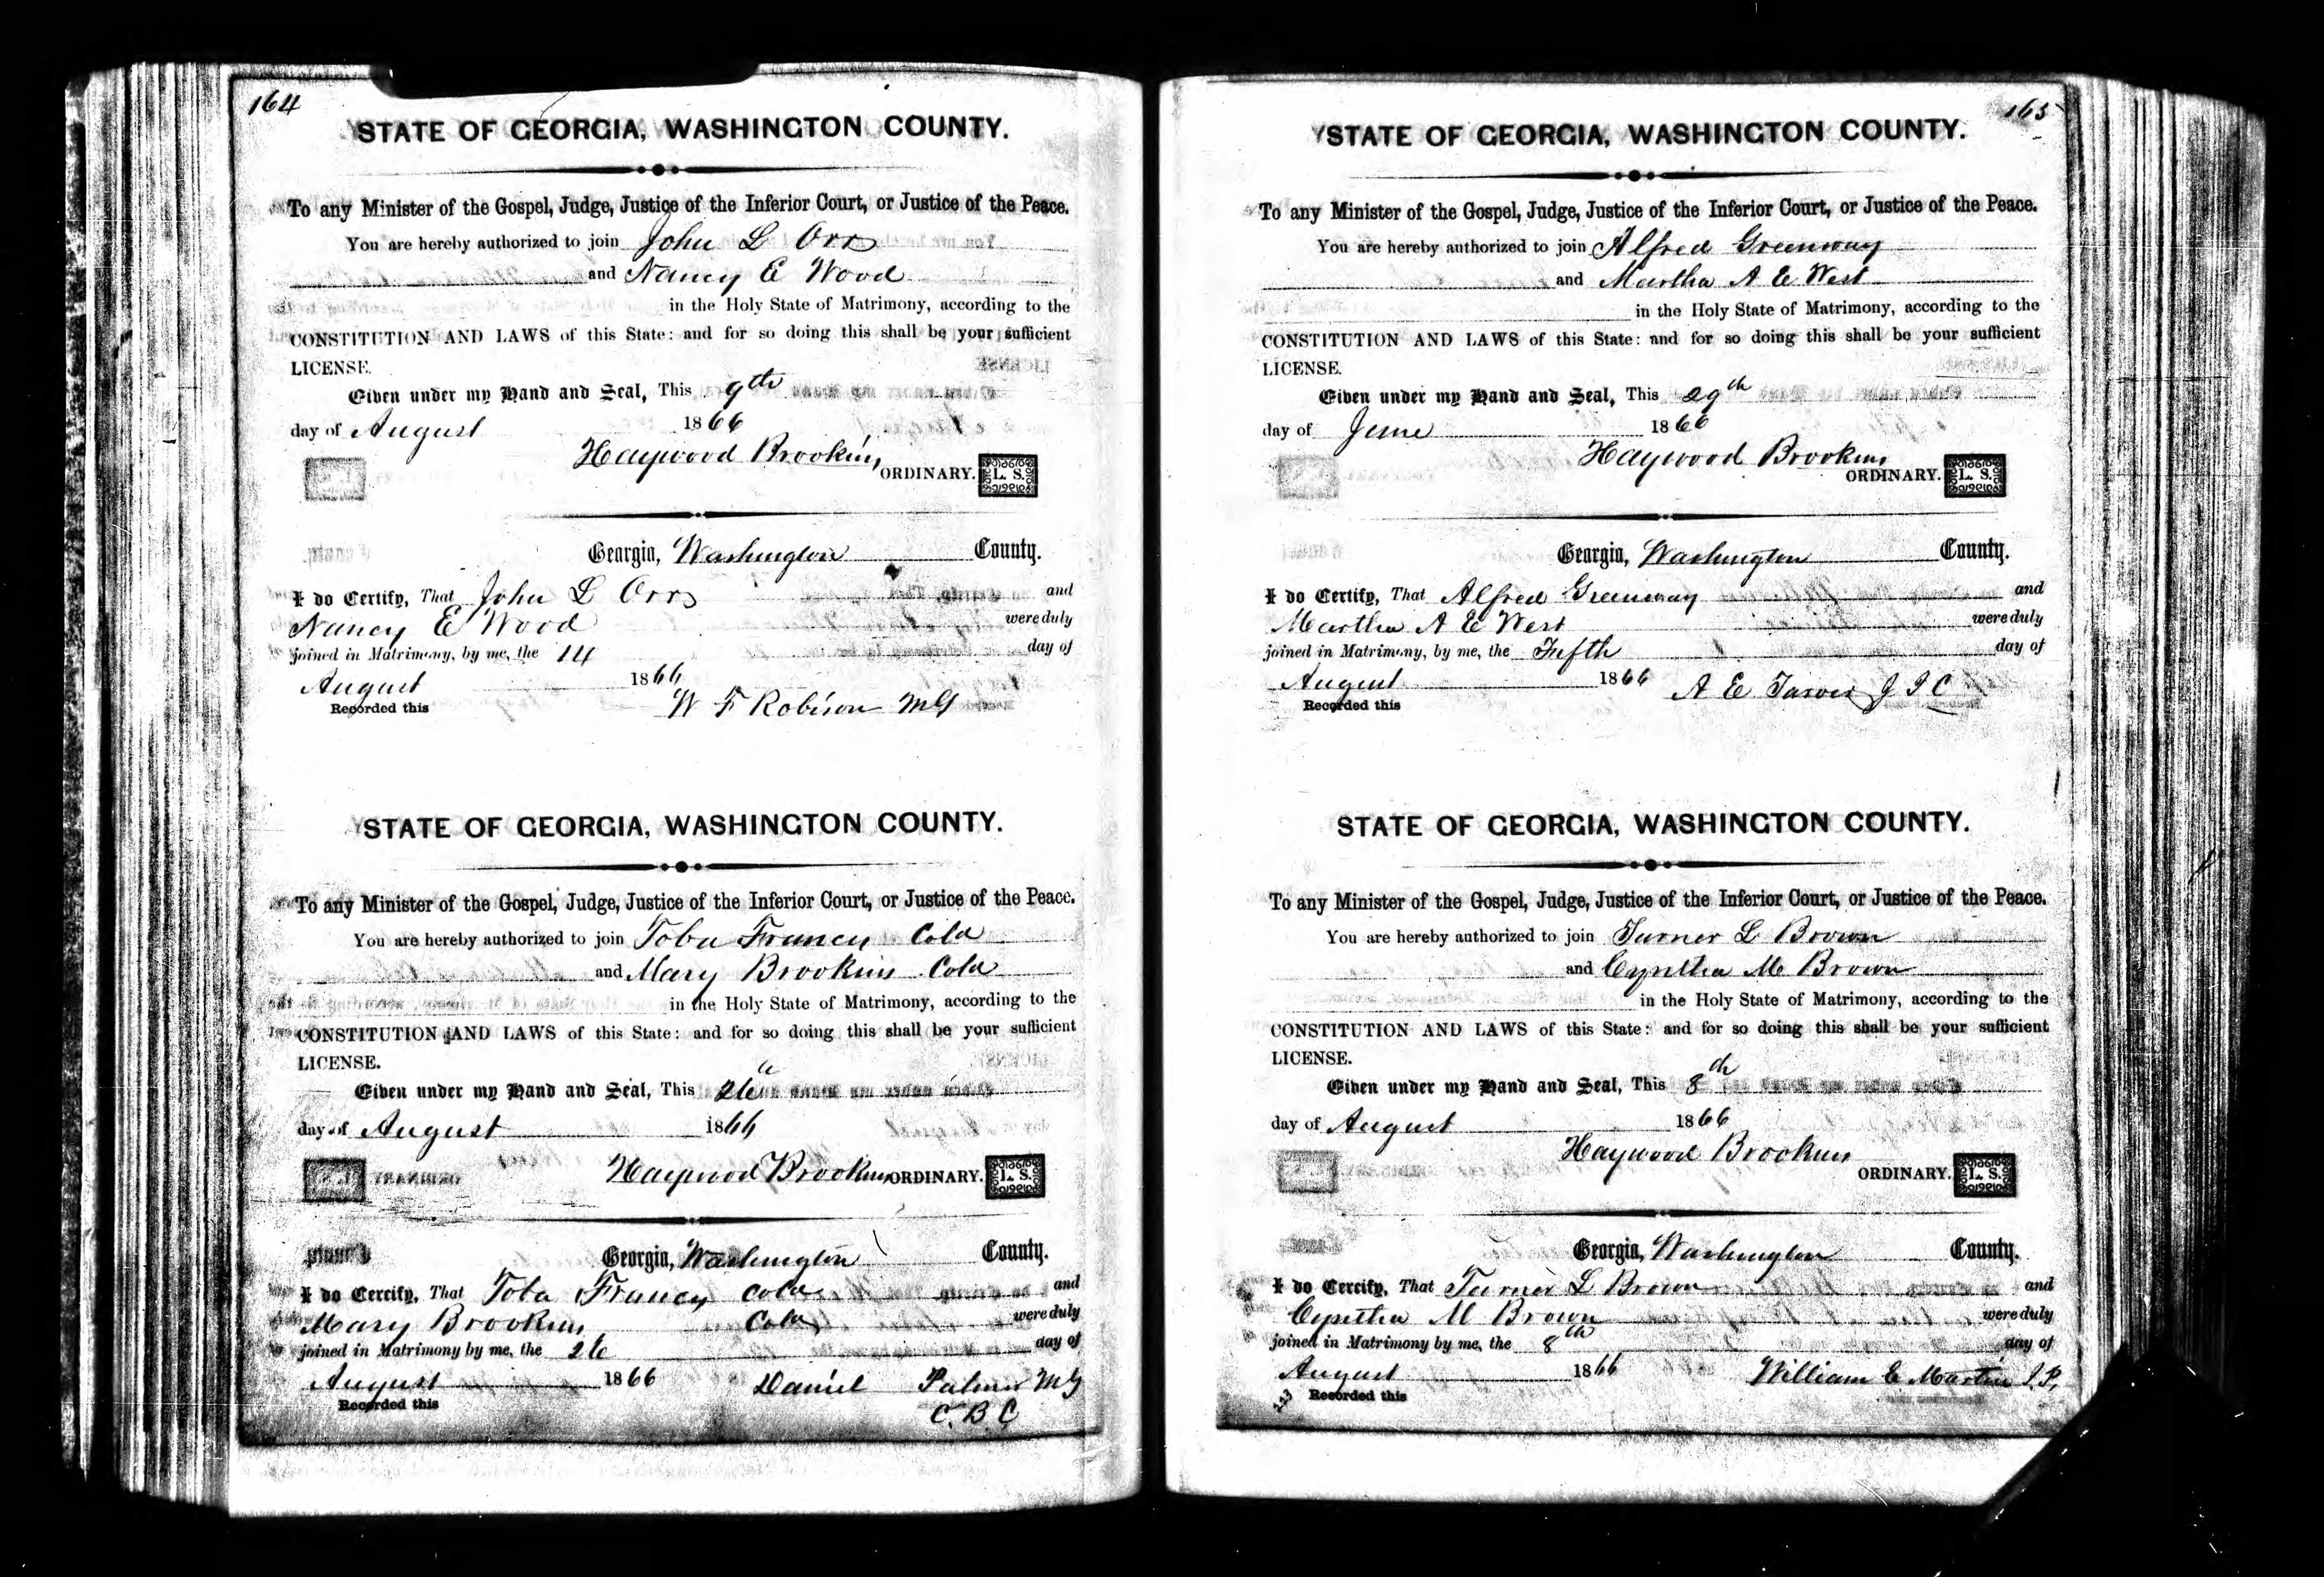 164
STATE OF GEORGIA, WASHINGTON COUNTY.
To any Minister of the Gospel, Judge, Justice of the Inferior Court, or Justice of the Peace.
You are hereby authorized to join John L Orr
and Nancy E Wood
in the Holy State of Matrimony, according to the
CONSTITUTION AND LAWS of this State: and for so doing this shall be your sufficient
LICENSE.
Given under my Hand and Seal, This 9th
day of August 1866
Haywood Brookins ORDINARY. L. S.
Georgia, Washington County.
I do Certify, That John L Orr and
Nancy E Wood were duly
joined in Matrimony, by me, the 14 day of
August 1866
Recorded this W F Robison MG
STATE OF GEORGIA, WASHINGTON COUNTY.
To any Minister of the Gospel, Judge, Justice of the Inferior Court, or Justice of the Peace.
You are hereby authorized to join Toba Francis Cold
and Mary Brookins Cold
in the Holy State of Matrimony, according to the
CONSTITUTION AND LAWS of this State: and for so doing this shall be your sufficient
LICENSE.
Given under my Hand and Seal, This 26
day of August 1866
Haywood Brookins ORDINARY. L. S.
Georgia, Washington County.
I do Certify, That Toba Francis Cold and
Mary Brookins Cold were duly
joined in Matrimony by me, the 26 day of
August 1866 Daniel Palmer MG
Recorded this C. B C
165
STATE OF GEORGIA, WASHINGTON COUNTY.
To any Minister of the Gospel, Judge, Justice of the Inferior Court, or Justice of the Peace.
You are hereby authorized to join Alfred Greenway
and Martha A E West
in the Holy State of Matrimony, according to the
CONSTITUTION AND LAWS of this State: and for so doing this shall be your sufficient
LICENSE.
Given under my Hand and Seal, This 29th
day of June 1866
Haywood Brookins
ORDINARY. L. S.
Georgia, Washington County.
I do Certify, That Alfred Greenway and
Martha A E West were duly
joined in Matrimony, by me, the Fifth day of
August 1866 A E Tarver J I C
Recorded this
STATE OF GEORGIA, WASHINGTON COUNTY.
To any Minister of the Gospel, Judge, Justice of the Inferior Court, or Justice of the Peace.
You are hereby authorized to join Turner L Brown
and Cyntha M Brown
in the Holy State of Matrimony, according to the
CONSTITUTION AND LAWS of this State: and for so doing this shall be your sufficient
LICENSE.
Given under my Hand and Seal, This 8th
day of August 1866
Haywood Brookins
ORDINARY. L. S.
Georgia, Washington County.
I do Certify, That Turner L Brown and
Cyntha M Brown were duly
joined in Matrimony by me, the 8th day of
August 1866 William E Martin J.P.
Recorded this